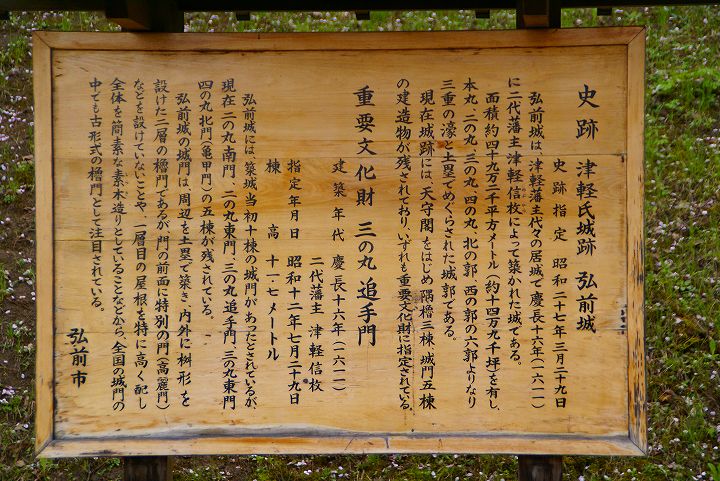 史跡 津軽氏城跡 弘前城
史跡指定 昭和二十七年三月二十九日
弘前城は、津軽藩主代々の居城で慶長十六年(一六一一)
に二代藩主津軽信枚によって築かれた城である。
面積約四十九万二千平方メートル(約十四万九千坪)を有し、
本丸、二の丸、三の丸、四の丸、北の郭、西の郭の六郭よりなり
三重の濠と土塁でめぐらされた城郭である。
現在城跡には、天守閣をはじめ隅櫓三棟、城門五棟
の建造物が残されており、いずれも重要文化財に指定されている。
重要文化財 三の丸 追手門
建築年代 慶長十六年(一六一一)
二代藩主 津軽信枚
指定年月日 昭和十二年七月二十九日
棟 高 十一・七メートル
弘前城には、築城当初十棟の城門があったとされているが、
現在、二の丸南門、二の丸東門、三の丸追手門、三の丸東門
四の丸北門(亀甲門)の五棟が残されている。
弘前城の城門は、周辺を土塁で築き、内外に桝形を
設けた二層の櫓門であるが、門の前面に特別の門(高麗門)
などを設けていないことや、一層目の屋根を特に高く配し
全体を簡素な素木造りとしていることなどから、全国の城門の
中でも古形式の櫓門として注目されている。
弘前市